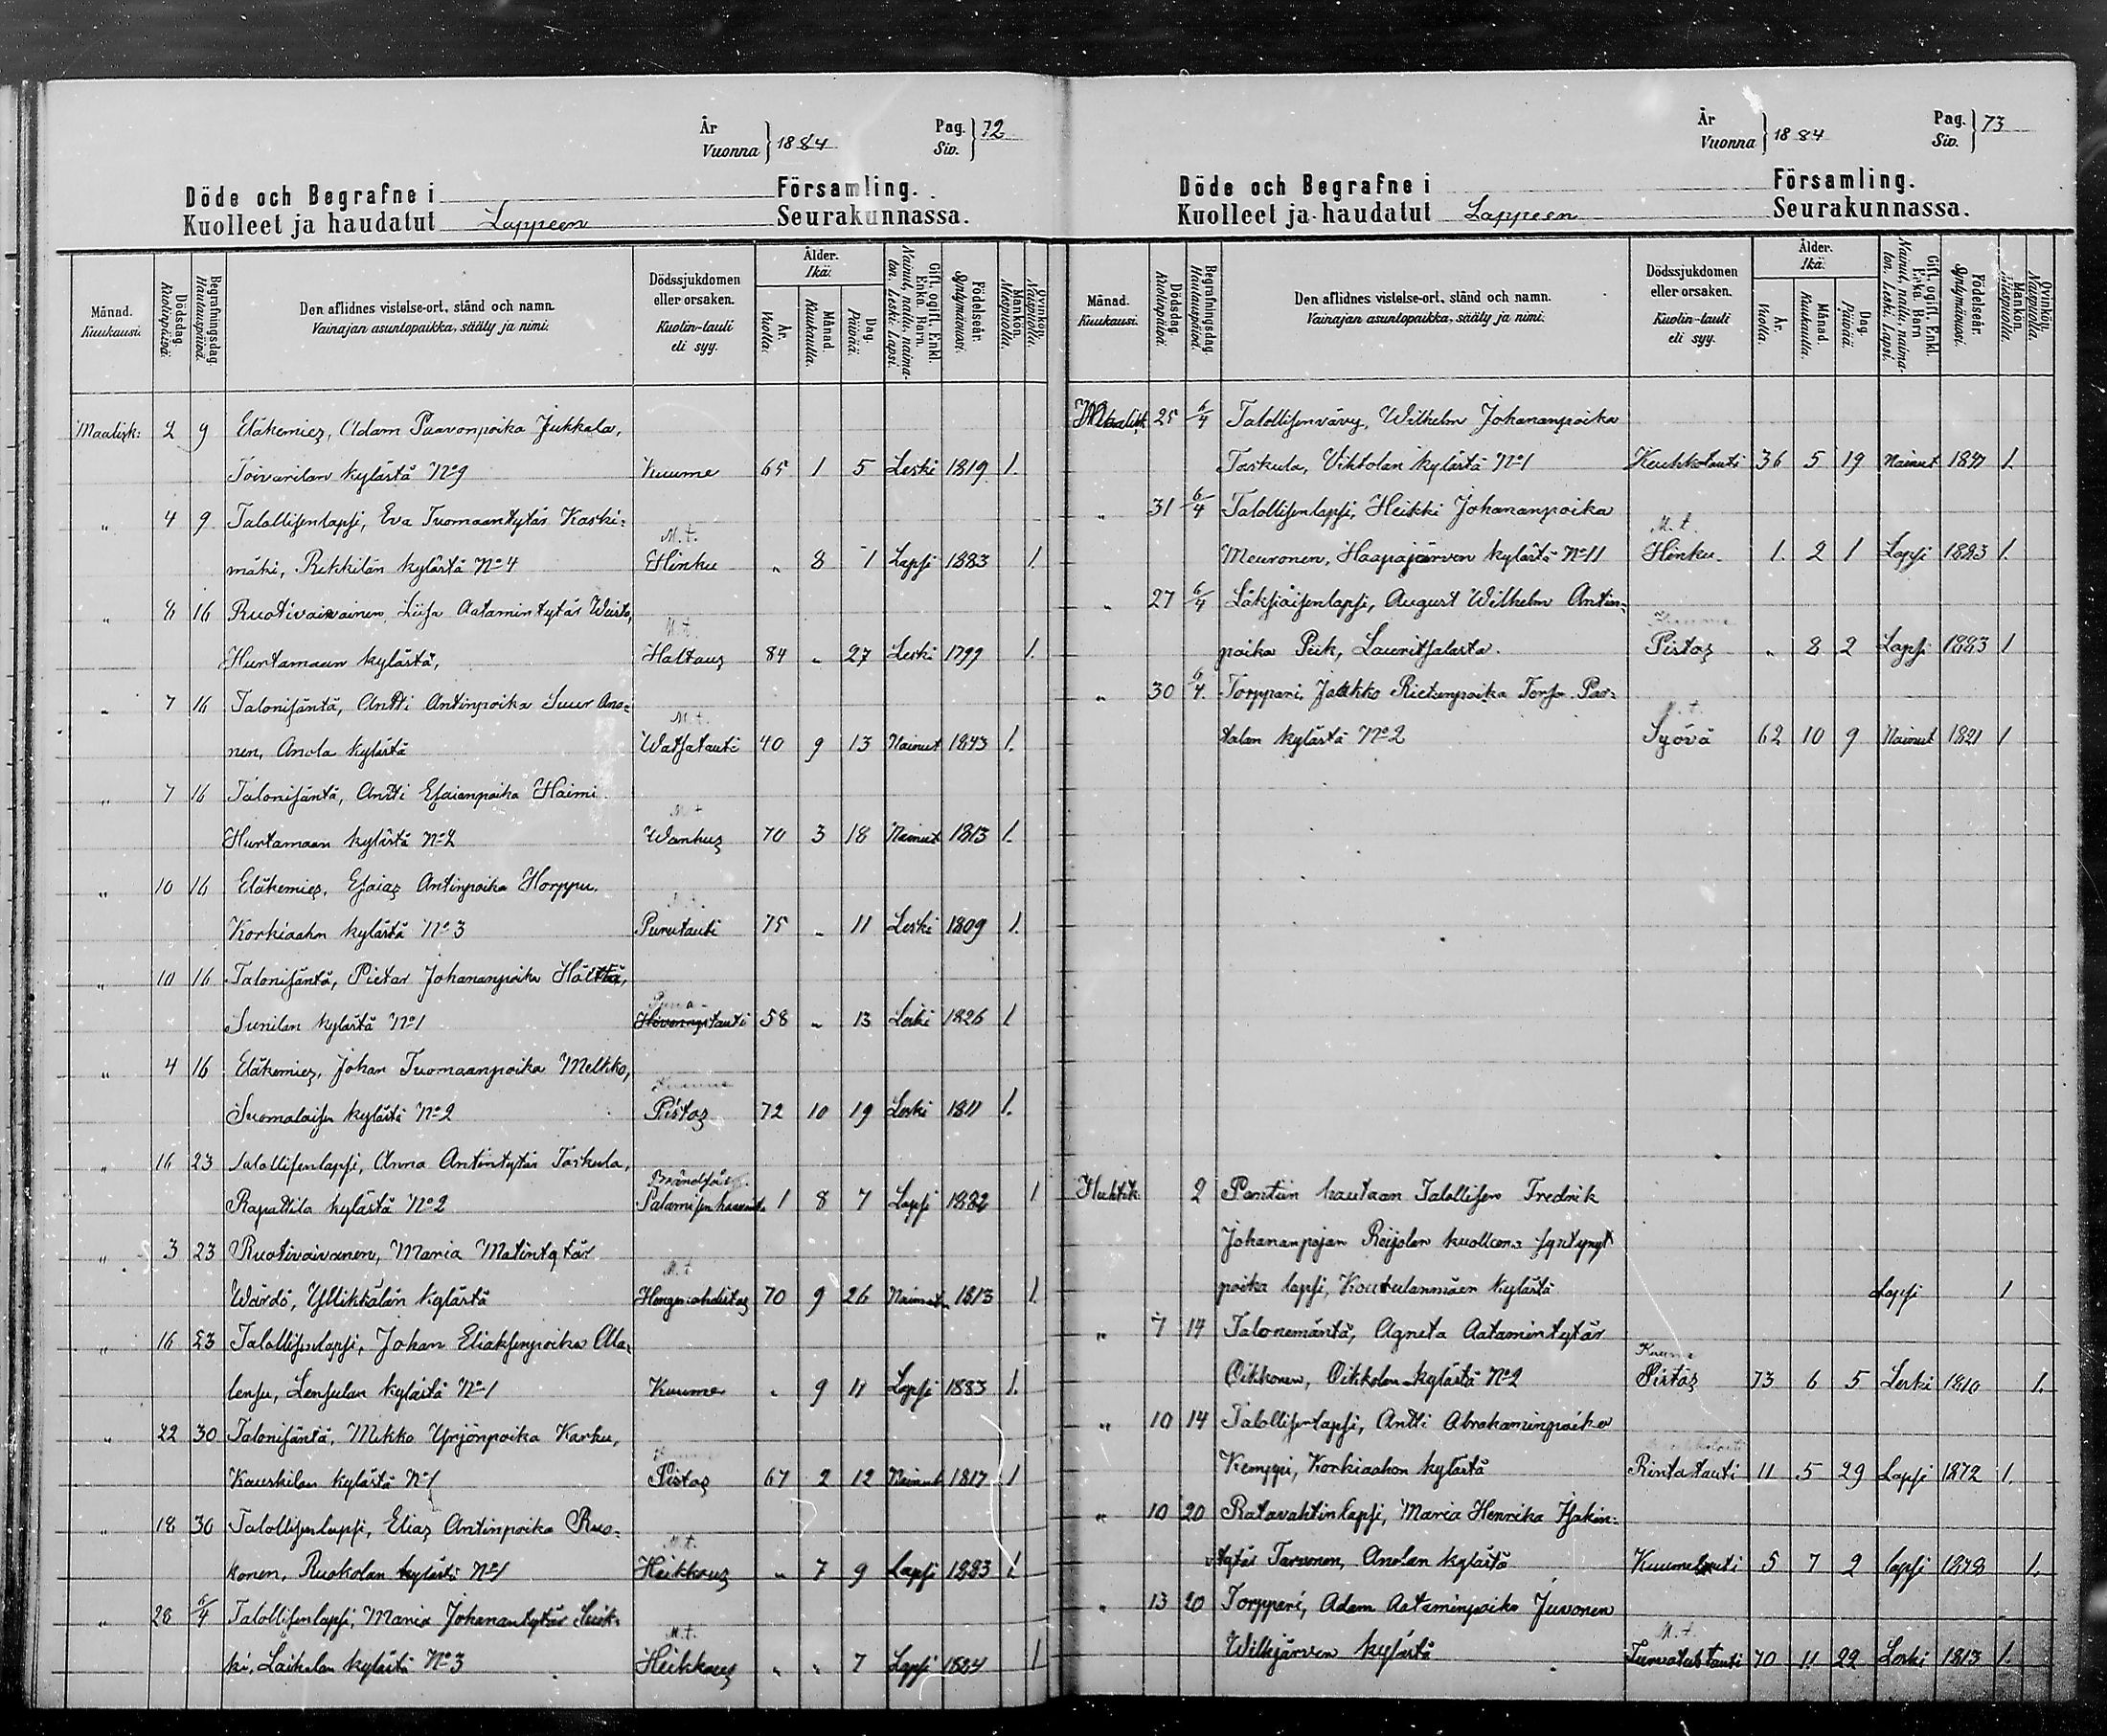 År
Vuonna } 1884 Pag. Siv. } 72
Döde och Begrafne i Församling.
Kuolleet ja haudatut Lappeen Seurakunnassa.
Månad. Kuukausi. Dödsdag. Kuolinpäivä. Begrafningsdag. Hautauspäivä. Den aflidnes vistelse-ort, stånd och namn. Vainajan asuntopaikka, sääty ja nimi. Dödssjukdomen eller orsaken. Kuolin-tauti eli syy. Ålder. Ikä. År. Vuotta. Månad. Kuukautta. Dag. Päivää. Gift, ogift, Enkl. Enka, Barn. Nainut, naitu, naimaton, Leski, Lapsi. Födelseår. Syntymävuosi. Mankön. Miespuolia. Qvinkön. Naispuolia.
Maalisk: 2 9 Eläkemies, Adam Paavonpoika Jukkala,
Toivarilan kylästä No 9 Kuume 65 1 5 Leski 1819 1.
" 4 9 Talollisenlapsi, Eva Tuomaantytär Kaski-
M.t.
mäki, Rikkilän kylästä No 4 Hinku " 8 1 Lapsi 1883 1.
" 8 16 Ruotivaivainen, Liisa Aatamintytär
M.t.
Huntamaan kylästä, Haltaus 84 " 27 Leski 1799 1.
" 7 16 Talonisäntä, Antti Antinpoika Suur Ano-
M.t.
nen, Anola kylästä Watsatauti 40 9 13 Nainut 1843 1.
" 7 16 Talonisäntä, Antti Esaianpoika Haimi
M.t.
Huntamaan kylästä No 2 Wanhus 70 3 18 Nainut 1813 1.
" 10 16 Eläkemies, Esaias Antinpoika Horppu,
Korkiaahn kylästä No 3 Purutauti 75 " 11 Leski 1809 1.
" 10 16 Talonisäntä, Pietar Johananpoika Hälttä,
Sunilan kylästä No 1 tauti 58 " 13 Leski 1826 1
" 4 16 Eläkemies, Johan Tuomaanpoika Melkko,
Kuume
Suomalaisen kylästä No 2 Pistos 72 10 19 Leski 1811 1.
" 16 23 Talollisenlapsi, Anna Antintytär Taskula,
Rapattila kylästä No 2 Palamisen 1 8 7 Lapsi 1882 1
" 3 23 Ruotivaivanen, Maria Matintytär
M.t.
Wärdö, Yllikkälän kylästä Hengenahdistus 70 9 26 Nainut 1813 1.
" 16 23 Talollisenlapsi, Johan Eliaksenpoika Ala-
lensu, Lensulan kylästä No 1 Kuume " 9 11 Lapsi 1883 1.
" 22 30 Talonisäntä, Mikko Yrjönpoika Karhu,
Kuume
Kauskilan kylästä No 1 Pistos 67 2 12 Nainut 1817 1
" 18 30 Talollisenlapsi, Elias Antinpoika Ruo-
M.t.
konen, Ruokolan kylästä No 1 Heikkous " 7 9 Lapsi 1883 1
" 28 6/4 Talollisenlapsi, Maria Johanantytär
M.t.
ki, Laihalan kylästä No 3 Heikkous " " 7 Lapsi 1884 1
År
Vuonna } 1884 Pag. Siv. } 73
Döde och Begrafne i Församling.
Kuolleet ja haudatut Lappeen Seurakunnassa.
Månad. Kuukausi. Dödsdag. Kuolinpäivä. Begrafningsdag. Hautauspäivä. Den aflidnes vistelse-ort, stånd och namn. Vainajan asuntopaikka, sääty ja nimi. Dödssjukdomen eller orsaken. Kuolin-tauti eli syy. Ålder. Ikä. År. Vuotta. Månad. Kuukautta. Dag. Päivää. Gift, ogift, Enkl. Enka, Barn. Nainut, naitu, naimaton, Leski, Lapsi. Födelseår. Syntymävuosi. Mankön. Miespuolia. Qvinkön. Naispuolia.
Maalisk 25 6/4 Talollisenvävy, Wilhelm Johananpoika
Taskula, Vihtolan kylästä No 1 Keuhkotauti 36 5 19 Nainut 1847 1.
" 31 6/4 Talollisenlapsi, Heikki Johananpoika
M.t.
Meuronen, Haapajärven kylästä No 11 Hinku 1. 2 1 Lapsi 1883 1.
" 27 6/4 Läksiäisenlapsi, August Wilhelm Antin-
Kuume
poika Piik, Lauritsalasta. Pistos " 8 2 Lapsi 1883 1
" 30 6/4 Torppari, Jaakko Rietunpoika Torsa Par-
M.t.
talan kylästä No 2 Syövä 62 10 9 Nainut 1821 1
Huhtik. 2 Pantiin hautaan Talollisen Fredrik
Johananpojan Reijolan kuolleena syntynyt
poika lapsi, Koutulanmäen kylästä Lapsi 1
" 7 14 Talonemäntä, Agneta Aatamintytär
Kuume
Oikkonen, Oikkolan kylästä No 2 Pistos 73 6 5 Leski 1810 1.
" 10 14 Talollisenlapsi, Antti Abrahaminpoika
Kemppi, Korkiaahon kylästä Rintatauti 11 5 29 Lapsi 1872 1.
" 10 20 Ratavahtinlapsi, Maria Henrika Isakin-
tytär Tarvonen, Anolan kylästä Kuumetauti 5 7 2 lapsi 1878 1.
" 13 20 Torppari, Adam Aataminpoika Juvonen
M.t.
Wilkjärven kylästä Turvatustauti 70 11 22 Leski 1813 1.